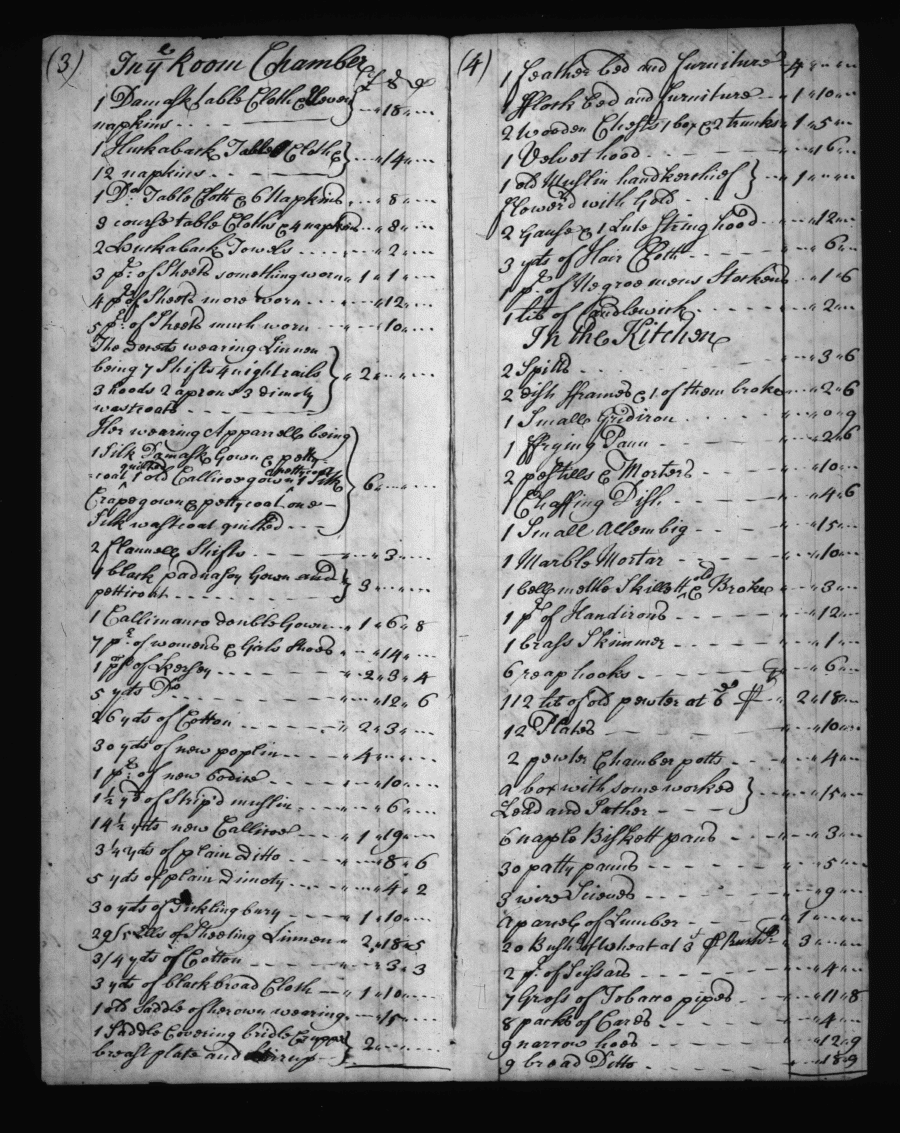 (3)
In yͤ Room Chamber
£ S D
1 Damask table Cloth & Eleven
napkins - - - - " 18 "
1 Huckaback Table Cloth &
12 napkins - - - " 14 "
1 Do Table Cloth & 6 Napkins " 8 "
3 course table Cloths & 4 napkins " 8 "
2 Huckaback Towels - - - " 2 "
3 pr. of Sheets something worn " 1 " 1 "
4 pr. of Sheets more worn - - - " 12 "
5 pr. of Sheets much worn " 10 "
The wearing Linnen
being 7 Shifts 4 nightrails
3 hoods 2 aprons 3 dimoty
wastcoats - - - - " 2 "
Her wearing Apparrell being
1 Silk Damask Gown & petty-
coat quilted 1 old Callicoe gown & pettycoat 1 Silk
Crape gown & pettycoat one
Silk wastcoat quilted - - - 6 "
2 flannell Shifts - - - - " 3 "
1 black padusoy Gown and
petticoat - - - - 3 "
1 Callimanco double Gown " 1 " 6 " 8
7 pr. of womens & Girls Shoes " 14 "
1 ps of Kersey - - - - " 2 " 3 " 4
5 yds Do - - - - " 12 " 6
26 yds of Cotton - - - - " 2 " 3 "
30 yds of new poplin - - - " 4 "
1 pr. of new bodice - - - - " 10 "
1 ½ yd of Strip'd muslin - - - " 6 "
14 ½ yds new Callicoe - - - " 1 " 19 "
3 ¼ yds of plain Ditto - - - " 8 " 6
5 yds of plain Dimoty - - - " 4 " 2
30 yds of Ticklingbury - - - " 1 " 10 "
29/5 Ells of Sheeting Linnen " 2 " 18 " 5
3/4 yds of Cotton - - - " 3 " 3
3 yds of black broad Cloth " 1 " 10 "
1 old Saddle of her own wearing " 15 "
1 Saddle Covering bridle Crupper
breast plate and Stirrup - - 2 "
(4)
1 Feather bed and Furniture - 4 "
1 fflock bed and furniture - - 1 " 10 "
2 wooden Chests 1 box & 2 trunks " 1 " 5 "
1 Velvet hood - - - - " 6 "
1 old Muslin handkerchief
flower'd with Gold - - " 1 "
2 Gause & 1 Lute String hood - - " 12 "
3 yds of Hair Cloth - - - " 6 "
1 pr. of Negroe mens Stockens " 1 " 6
1 lib of Candlewick - - - - " 2 "
In the Kitchen
2 Spitts - - - - " 3 " 6
2 dish fframes & 1 of them broke " 2 " 6
1 Small Gridiron - - - - " 0 " 9
1 ffrying Pann - - - " 2 " 6
2 pestills & Morters - - - " 10 "
1 Chaffing Dish - - - " 4 " 6
1 Small Allembig - - - " 15 "
1 Marble Mortar - - - " 10 "
1 bell mettle Skillett old & Broke " 3 "
1 pr. of Handirons - - - " 12 "
1 brass Skimmer - - - " 1 "
6 reap hooks - - - - " 6 "
112 lib of old pewter at 6 ℔ 2 " 18 "
12 Plates - - - - " 10 "
2 pewter Chamber potts - - " 4 "
a box with some worked
Lead and - - - " 15 "
6 naple Biskett pans - - " 3 "
30 patty panns - - - " 5 "
3 wire Scieves - - - " 9 "
A parcel of Lumber - - - 1 "
20 Bush of wheat at 3 ℔ Bush " 3 "
2 pr. of Scissars - - - " 4 "
7 Gross of Tobacco pipes - - - " 11 " 8
8 packs of Cards - - - - " 4 "
9 narrow hoes - - - - " 12 " 9
9 broad Ditto - - - - " 18 " 9